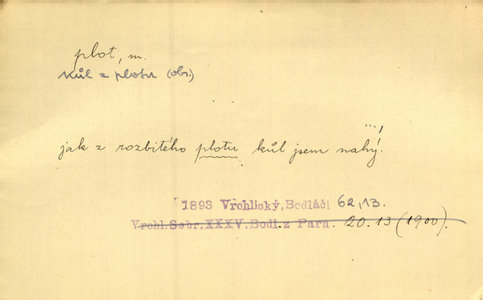 plot, m.
kůl z plotu (obr.)
jak z rozbitého plotu kůl jsem nahý.
1893 Vrchlický, Bodláčí 62,13.
Vrchl.Sebr.XXXV.Bodl.z Parn. 20.13 (1900).